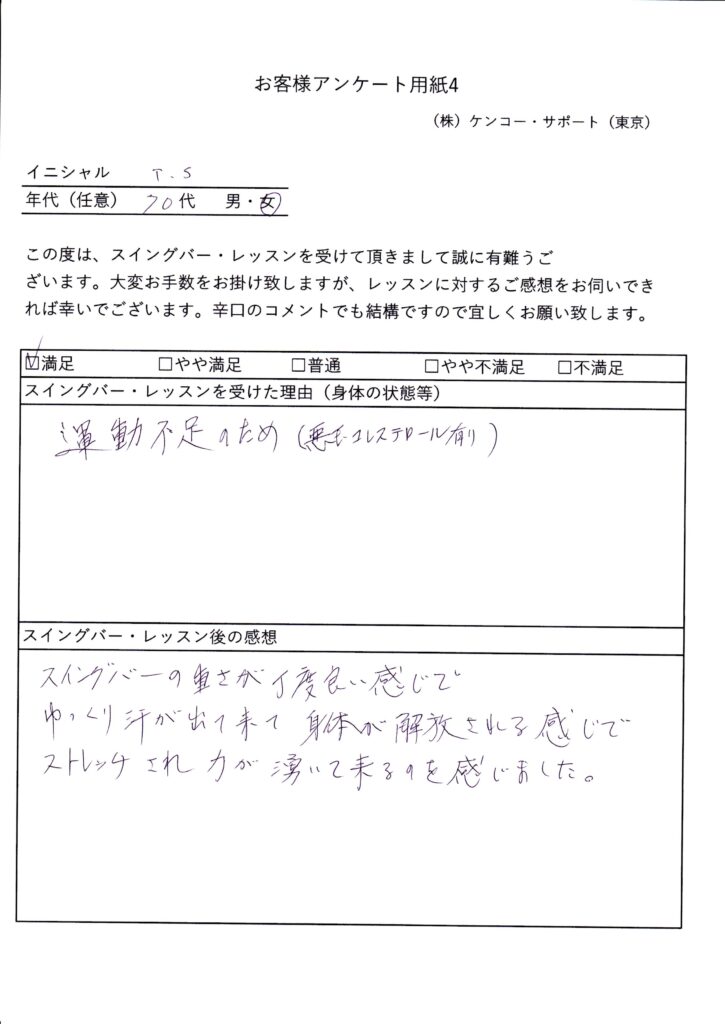 お客様アンケート用紙4
(株)ケンコー・サポート(東京)
イニシャル T.S
年代(任意) 70代 男・女
この度は、スイングバー・レッスンを受けて頂きまして誠に有難うご
ざいます。大変お手数をお掛け致しますが、レッスンに対するご感想をお伺いでき
れば幸いでございます。辛口のコメントでも結構ですので宜しくお願い致します。
☑満足 □やや満足 □普通 □やや不満足 □不満足
スイングバー・レッスンを受けた理由(身体の状態等)
運動不足のため(悪玉コレステロール有り)
スイングバー・レッスン後の感想
スイングバーの重さが丁度良い感じで
ゆっくり汗が出て来て身体が解放される感じで
ストレッチされ力が湧いて来るのを感じました。